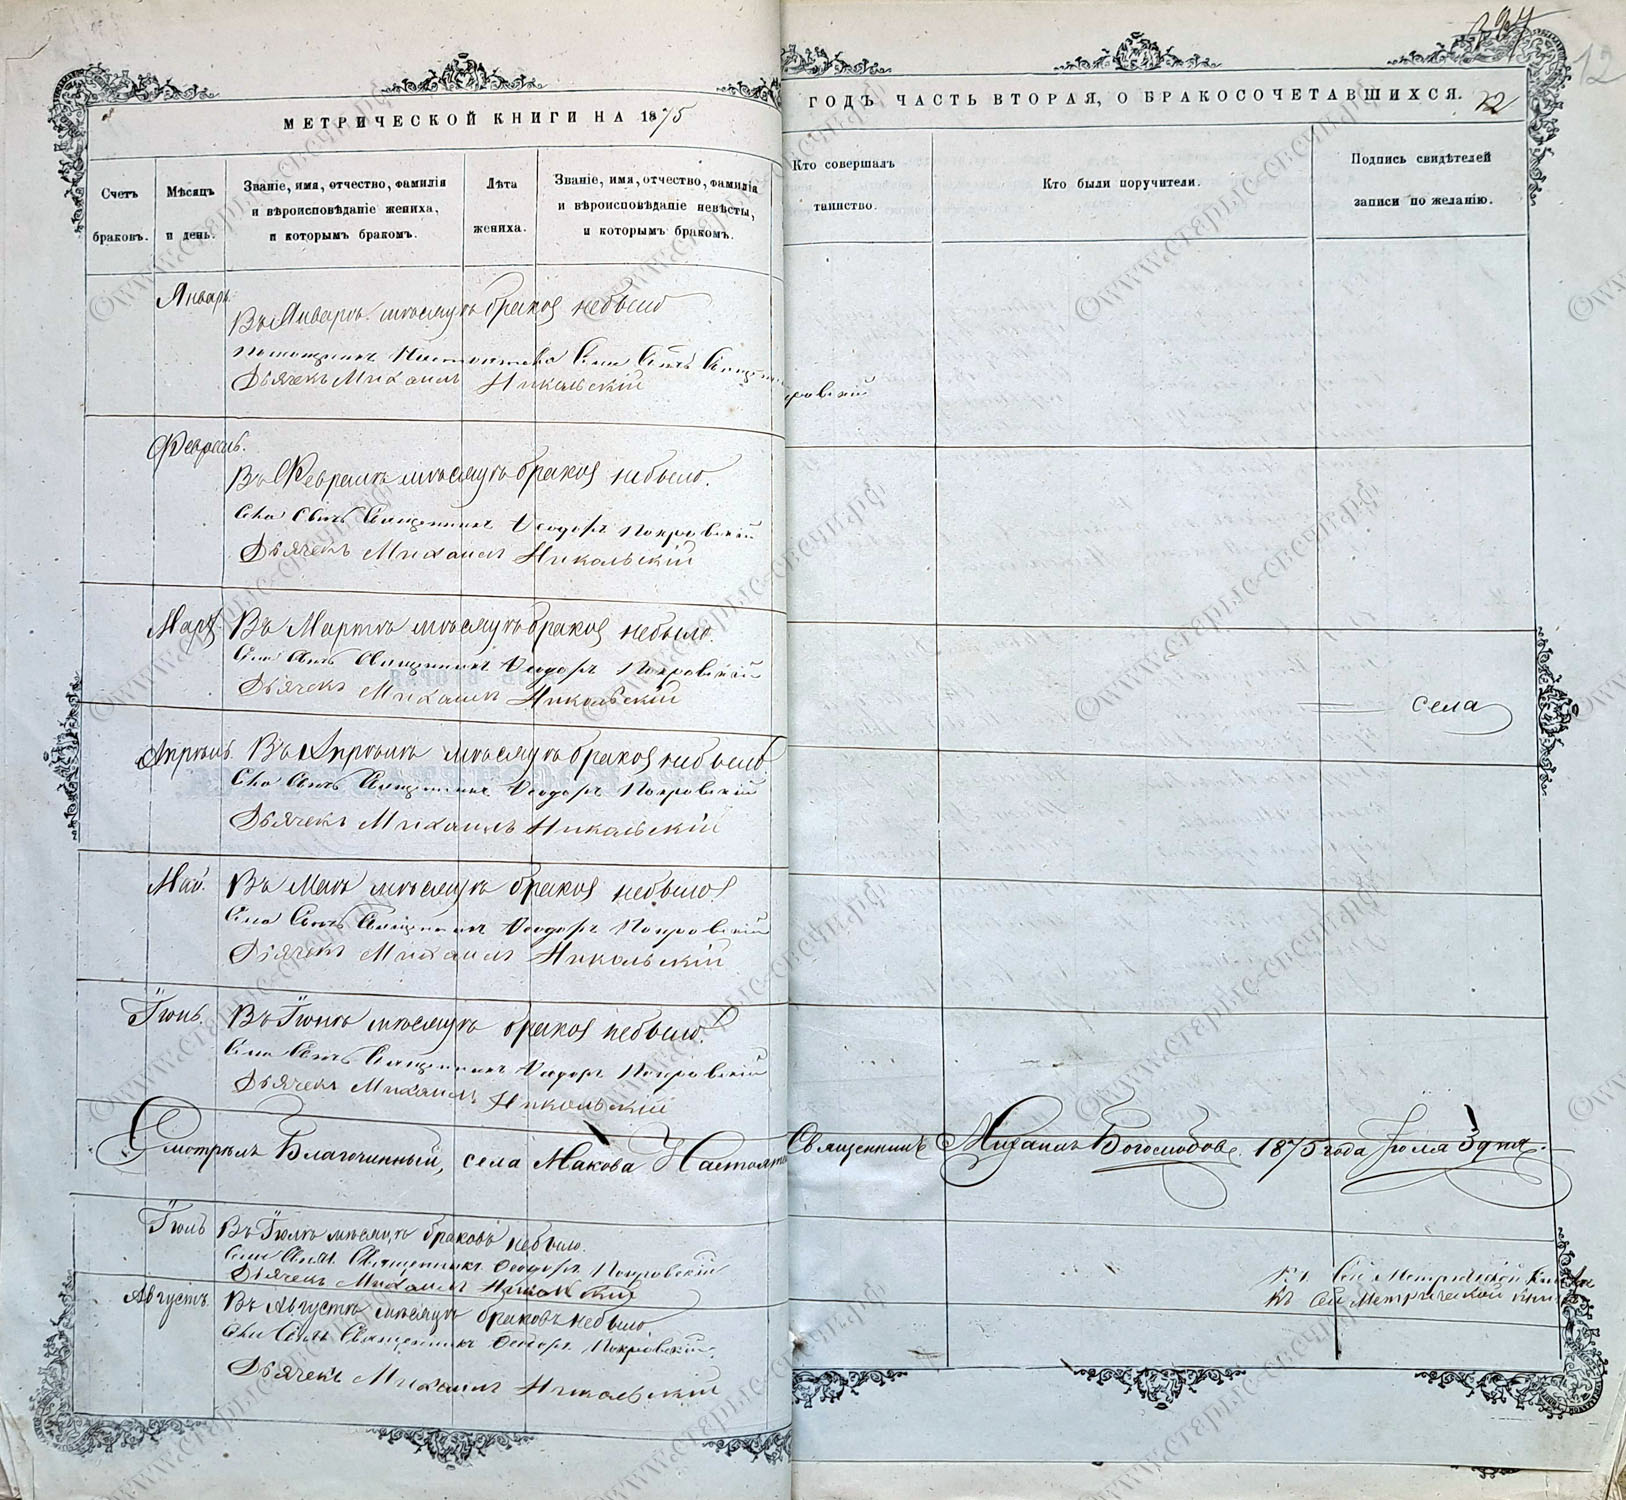 МЕТРИЧЕСКОЙ КНИГИ НА 1875 ГОДЪ. ЧАСТЬ ВТОРАЯ, О БРАКОСОЧЕТАВШИХСЯ.
12
Счетъ браковъ.
Мѣсяцъ и день.
Званіе, имя, отчество, фамилія
и вѣроисповѣданіе жениха,
и которымъ бракомъ.
Лѣта жениха.
Званіе, имя, отчество, фамилія
и вѣроисповѣданіе невѣсты,
и которымъ бракомъ.
Кто совершалъ
таинство.
Кто были поручители.
Подпись свидѣтелей
записи по желанію.
Январь.
Въ Январѣ мѣсяцѣ браков небыло
Помощникъ Настоятеля
ровскій
Дьячекъ Михаилъ Никольскій
Февраль.
Въ Февралѣ мѣсяцѣ браков небыло.
Священникъ Ѳеодоръ Покровскій
Дьячекъ Михаилъ Никольскій
Мартъ. Въ Мартѣ мѣсяцѣ браков небыло.
Священникъ Ѳеодоръ Покровскій
Дьячекъ Михаилъ Никольскій
села
Апрѣль. Въ Апрѣлѣ мѣсяцѣ браков небыло
Священникъ Ѳеодоръ Покровскій
Дьячекъ Михаилъ Никольскій
Май. Въ Маѣ мѣсяцѣ браков небыло.
Священникъ Ѳеодоръ Покровскій
Дьячекъ Михаилъ Никольскій
Іюнь. Въ Іюнѣ мѣсяцѣ браков небыло.
Священникъ Ѳеодоръ Покровскій
Дьячекъ Михаилъ Никольскій
Смотрѣлъ Благочинный, села Макова Настоят Священникъ Михаилъ Богословов. 1875 года Іюля 3 дня.
Іюль Въ Іюлѣ мѣсяцѣ браковъ небыло.
Священникъ Ѳеодоръ Покровскій
Дьячекъ Михаилъ Никольскій
Къ Сей Метрической Книгѣ
Къ Сей Метрической Книгѣ
Августъ. Въ Августѣ мѣсяцѣ браковъ небыло
Священникъ Ѳеодоръ Покровскій.
Дьячекъ Михаилъ Никольскій